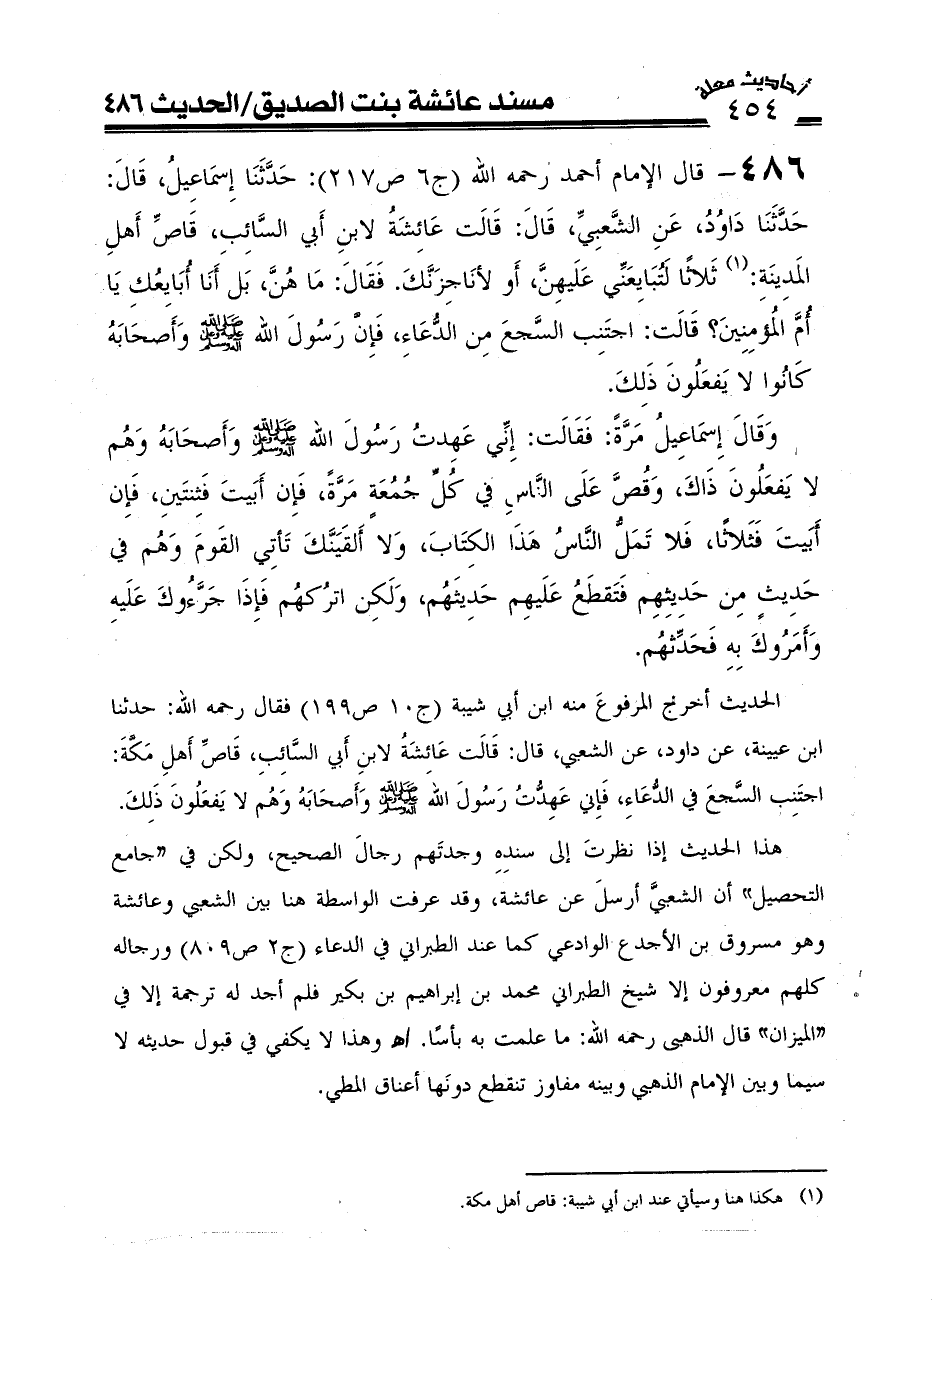 أحاديث معلة
٤٥٤
مسند عائشة بنت الصديق/الحديث ٤٨٦
٤٨٦- قال الإمام أحمد رحمه الله (ج٦ ص٢١٧): حَدَّثَنَا إِسمَاعيلُ، قَالَ:
حَدَّثَنَا دَاوُدُ، عَنِ الشَّعبيِّ، قَالَ: قَالَت عَائِشَةُ لابنِ أبي السَّائِب، قَاصِّ أَهلِ
المَدِينَةِ:(١) ثَلاثًا لَتُبَايِعَنِّي عَلَيهِنَّ، أَو لأنَاجِزَنَّكَ. فَقَالَ: مَا هُنَّ، بَل أَنَا أُبَايِعُك يَا
أُمَّ المُؤمِنِينَ؟ قَالَت: اجتَنِب السَّجعَ مِن الدُّعَاءِ، فَإِنَّ رَسُولَ الله ﷺ وَأَصحَابَهُ
كَانُوا لا يَفعَلُونَ ذَلِكَ.
وَقَالَ إِسمَاعيلُ مَرَّةً: فَقَالَت: إِنِّي عَهِدتُ رَسُولَ الله ﷺ وَأَصحَابَهُ وَهُم
لا يَفعَلُونَ ذَاكَ، وَقُصَّ عَلَى النَّاسِ فِي كُلِّ جُمُعَةٍ مَرَّةً، فَإِن أَبَيتَ فَثِنتَينِ، فَإِن
أَبَيتَ فَثَلاثًا، فَلا تَمَلُّ النَّاسُ هَذَا الكِتَابَ، وَلا ألقَيَنَّكَ تَأتِي القَومَ وَهُم فِي
حَدِيثٍ مِن حَدِيثِهِم فَتَقطَعُ عَلَيهِم حَدِيثَهُم، وَلَكِن اترُكهُم فَإِذَا جَرَّءُوكَ عَلَيهِ
وَأَمَرُوكَ بِهِ فَحَدِّثهُم.
الحديث أخرج المرفوعَ منه ابن أبي شيبة (ج١٠ ص١٩٩) فقال رحمه الله: حدثنا
ابن عيينة، عن داود، عن الشعبي، قال: قَالَت عَائِشَةُ لابنِ أَبي السَّائِبِ، قَاصِّ أَهلِ مَكَّةَ:
اجتَنِب السَّجعَ في الدُّعَاءِ، فَإِني عَهِدُّتُ رَسُولَ الله ﷺ وَأَصحَابَهُ وَهُم لا يَفعَلُونَ ذَلِكَ.
هذا الحديث إذا نظرتَ إلى سندِهِ وجدتَهم رجالَ الصحيح، ولكن في «جامع
التحصيل» أن الشعبيَّ أرسلَ عن عائشة، وقد عرفت الواسطة هنا بين الشعبي وعائشة
وهو مسروق بن الأجدع الوادعي كما عند الطبراني في الدعاء (ج٢ ص٨٠٩) ورجاله
كلهم معروفون إلا شيخ الطبراني محمد بن إبراهيم بن بكير فلم أجد له ترجمة إلا في
«الميزان» قال الذهبي رحمه الله: ما علمت به بأسًا. اﻫ وهذا لا يكفي في قبول حديثه لا
سيما وبين الإمام الذهبي وبينه مفاوز تنقطع دونَها أعناق المطي.
(١) هكذا هنا وسيأتي عند ابن أبي شيبة: قاص أهل مكة.